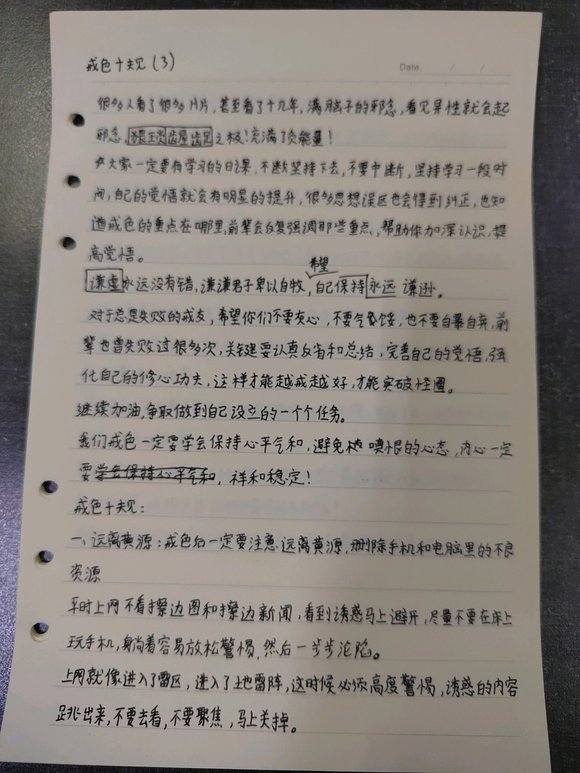 戒色十规（3）
Date / /
很多人看了很多H片，甚至看了十几年，满脑子的邪念，看见异性就会起
邪念，猥琐龌龊之极！充满了负能量！
大家一定要有学习的日课，不断坚持下去，不要中断，坚持学习一段时
间，自己的觉悟就会有明显的提升，很多思想误区也会得到纠正，也知
道戒色的重点在哪里，前辈会反复强调那些重点，帮助你加深认识，提
高觉悟。
希望
谦虚永远没有错，谦谦君子卑以自牧，自己保持永远谦逊。
对于总是失败的戒友，希望你们不要灰心，不要气馁，也不要自暴自弃，前
辈也曾失败过很多次，关键要认真反省和总结，完善自己的觉悟，强
化自己的修心功夫，这样才能越戒越好，才能突破怪圈。
继续加油，争取做到自己设立的一个个任务。
我们戒色一定要学会保持心平气和，避免嗔恨的心态，内心一定
要学会保持心平气和，祥和稳定！
戒色十规：
一、远离黄源：戒色后一定要注意远离黄源，删除手机和电脑里的不良
资源
平时上网不看擦边图和擦边新闻，看到诱惑马上避开，尽量不要在床上
玩手机，躺着容易放松警惕，然后一步步沦陷。
上网就像进入了雷区，进入了地雷阵，这时候必须高度警惕，诱惑的内容
跳出来，不要去看，不要聚焦，马上关掉。